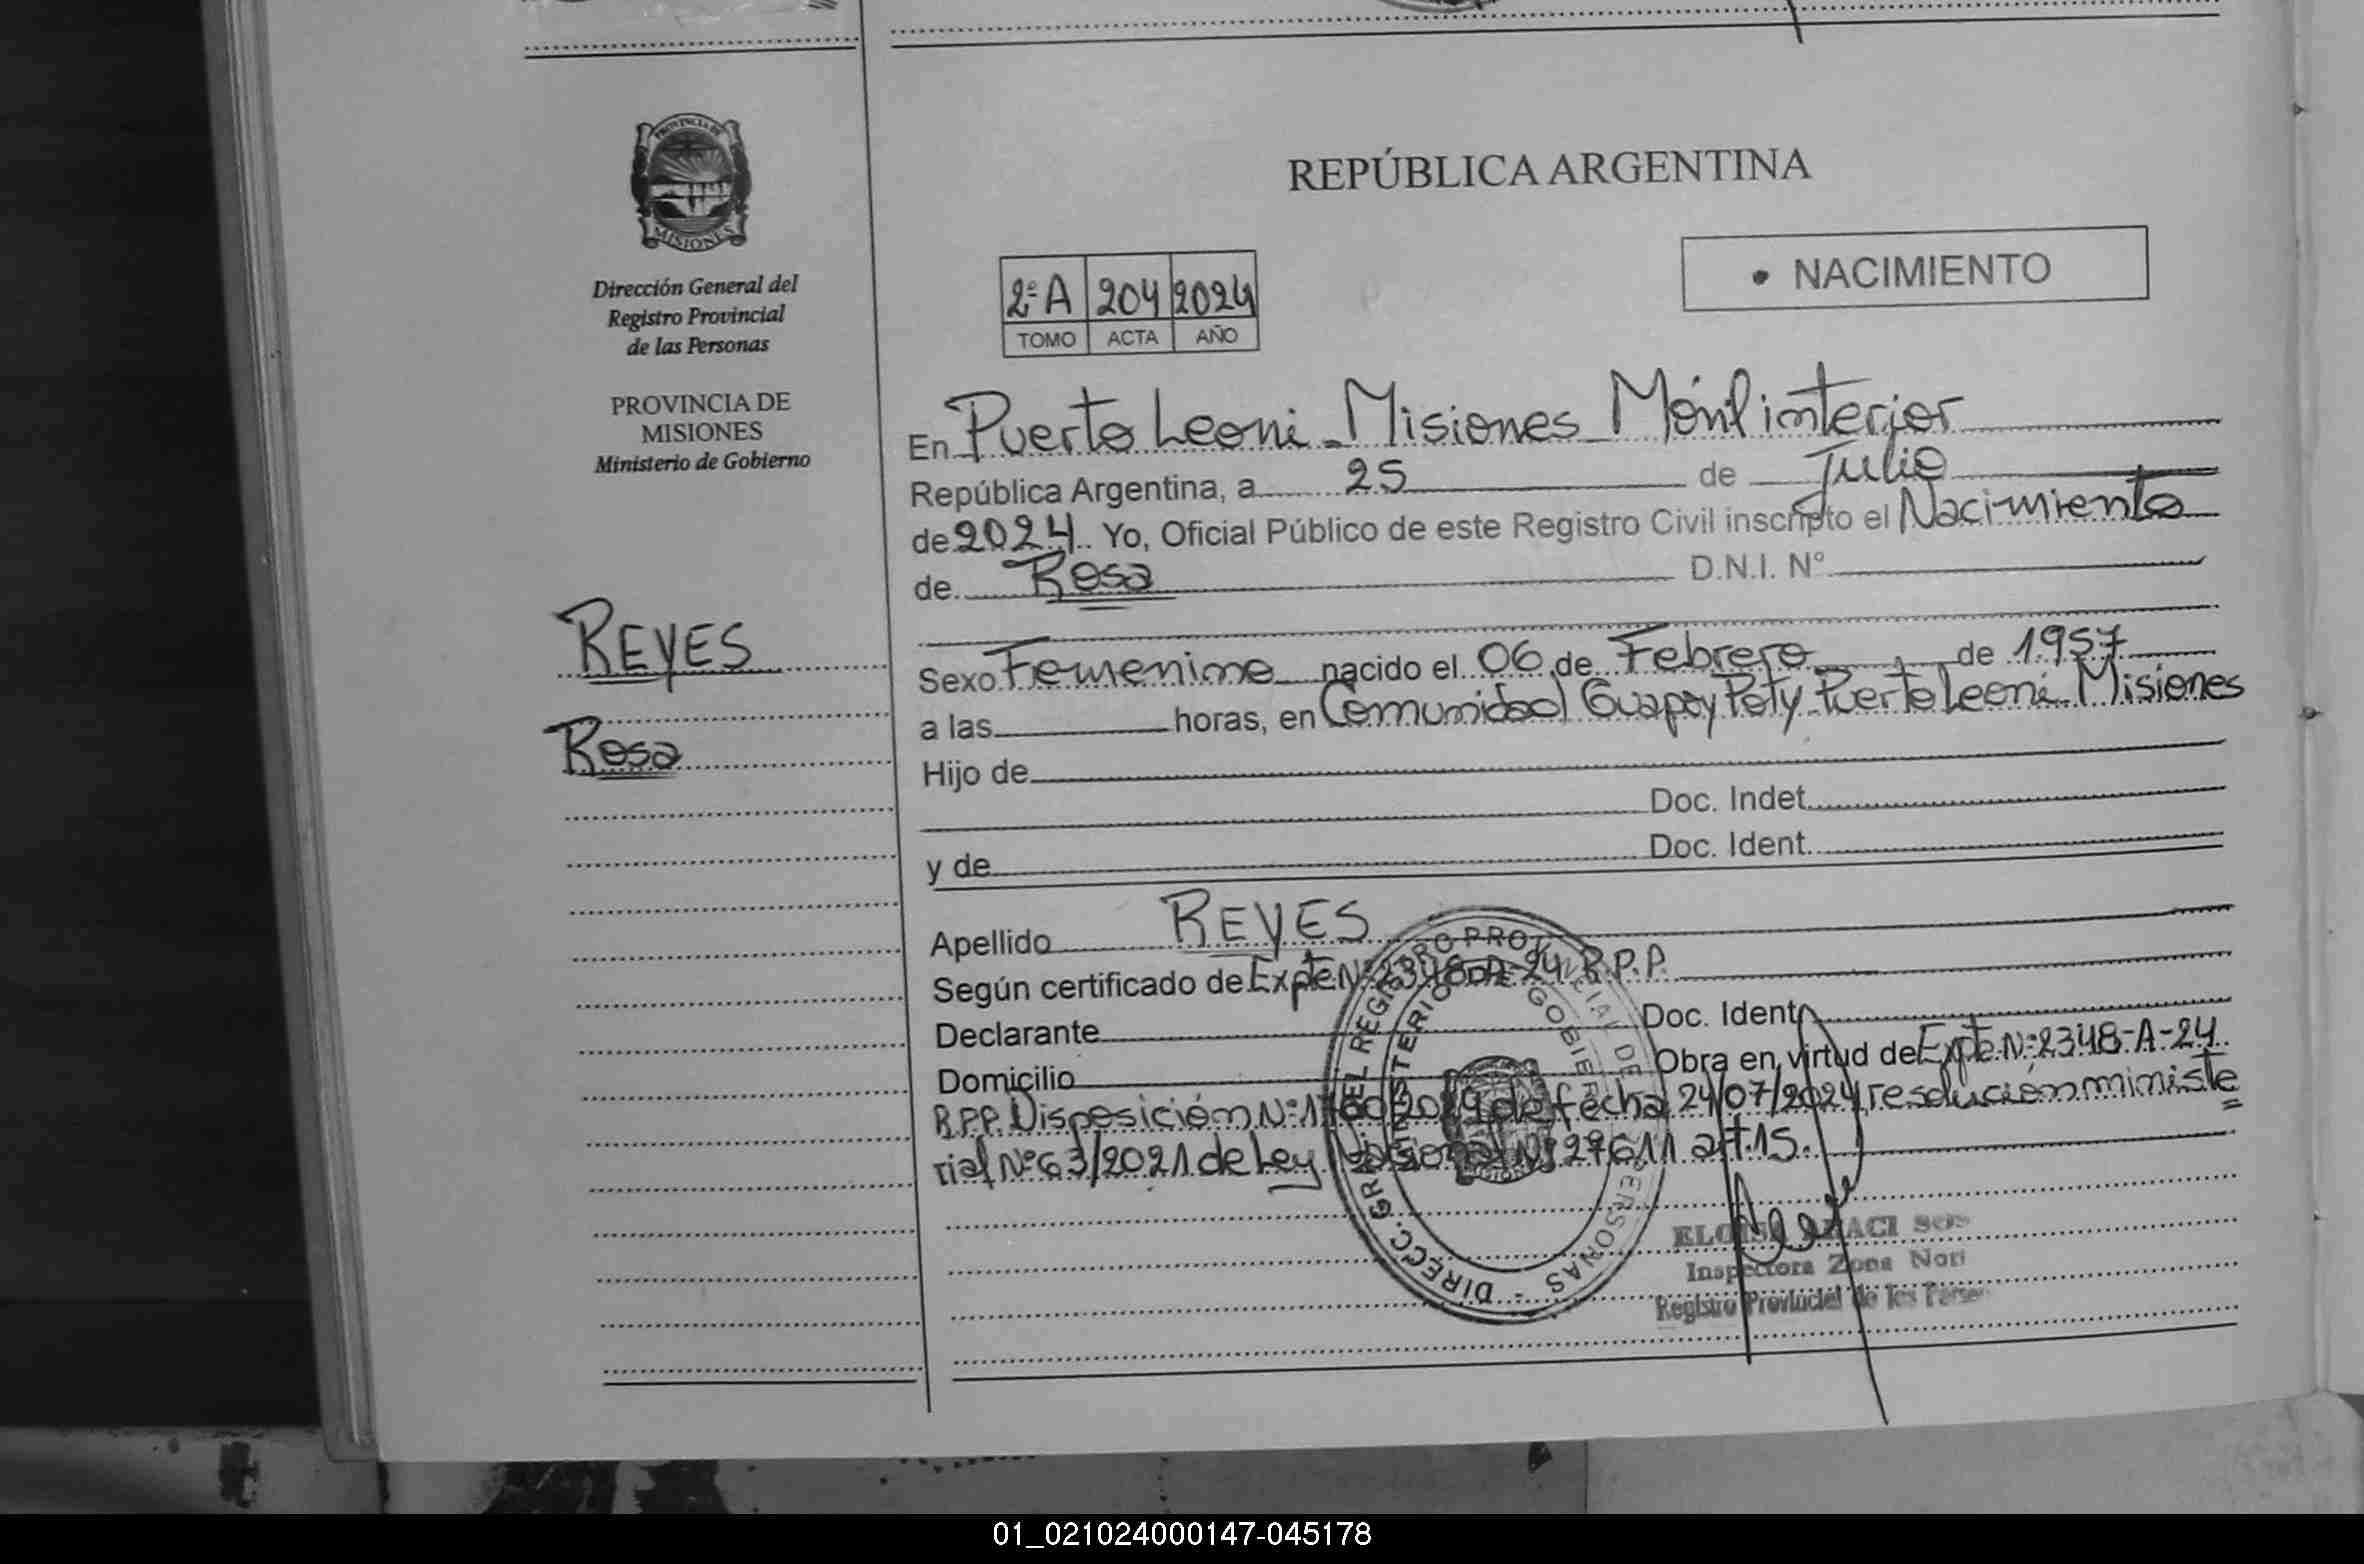 PROVINCIA DE
MISIONES
Dirección General del
Registro Provincial
de las Personas
PROVINCIA DE
MISIONES
Ministerio de Gobierno
REYES
Rosa
REPÚBLICA ARGENTINA
• NACIMIENTO
2º A 204 2024
TOMO ACTA AÑO
En Puerto Leoni - Misiones Móvil interior
República Argentina, a 25 de Julio
de 2024. Yo, Oficial Público de este Registro Civil inscripto el Nacimiento
de Rosa D.N.I. Nº
Sexo Femenino nacido el 06 de Febrero de 1957
a las horas, en Comunidad Guapoy Poty Puerto Leoni. Misiones
Hijo de
Doc. Indet.
y de Doc. Ident.
Apellido REYES
Según certificado de Expte Nº 2348-A-24 R.P.P.
Declarante Doc. Ident.
Domicilio Obra en virtud de Expte. Nº 2348-A-24
R.P.P. Disposición Nº de fecha 24/07/2024 resolución ministe
rial Nº 63/2021 de Ley Nacional Nº 27611 art. 15.
DIRECC. GRAL. DEL REGISTRO PROVINCIAL DE LAS PERSONAS -
MINISTERIO DE GOBIERNO
Inspectora Zona
Registro Provincial de las
01_021024000147-045178